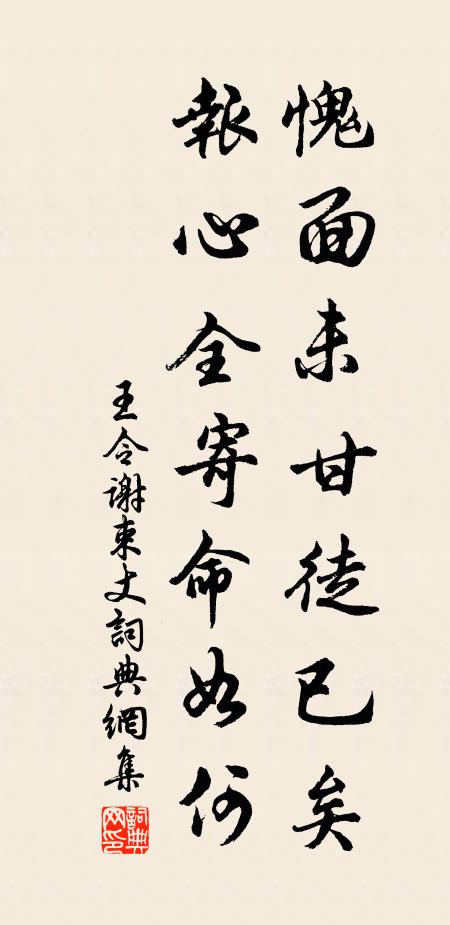 愧面未甘徒已矣
報心全寄命如何
王令謝束丈詞典網集
詞典網印